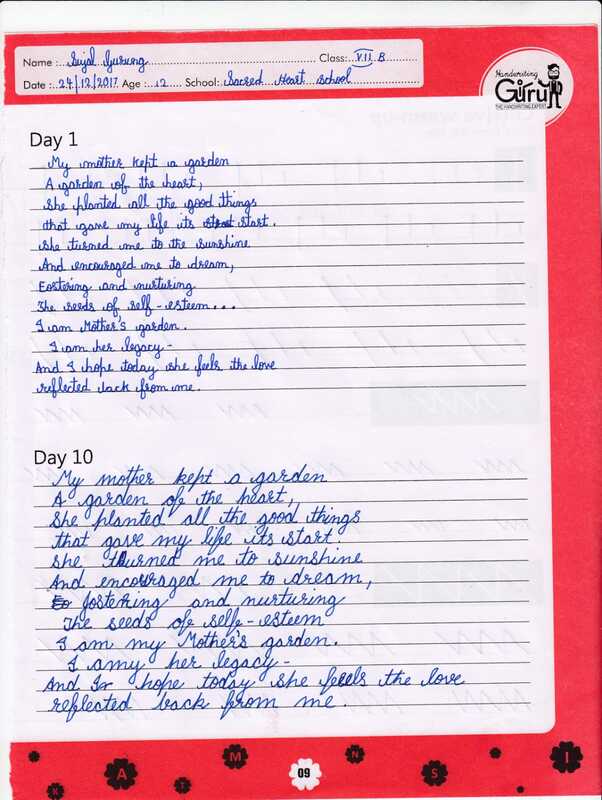 Name : Sujal Gurung Class: VII B
Date : 24/12/2017 Age : 12 School: Sacred Heart School
Handwriting
Guru
THE HANDWRITING EXPERT
Day 1
My mother kept a garden
A garden of the heart,
She planted all the good things
that gave my life its start.
she turned me to the sunshine
And encouraged me to dream,
Fostering and nurturing
The seeds of self-esteem...
I am Mother's garden.
I am her legacy-
And I hope today she feels the love
reflected back from me.
Day 10
My mother kept a garden
A garden of the heart,
She planted all the good things
that gave my life its start.
she turned me to sunshine
And encouraged me to dream,
fostering and nurturing
The seeds of self-esteem
I am my Mother's garden.
I amy her legacy-
And I hope today she feels the love
reflected back from me.
K A T M 09 N S I